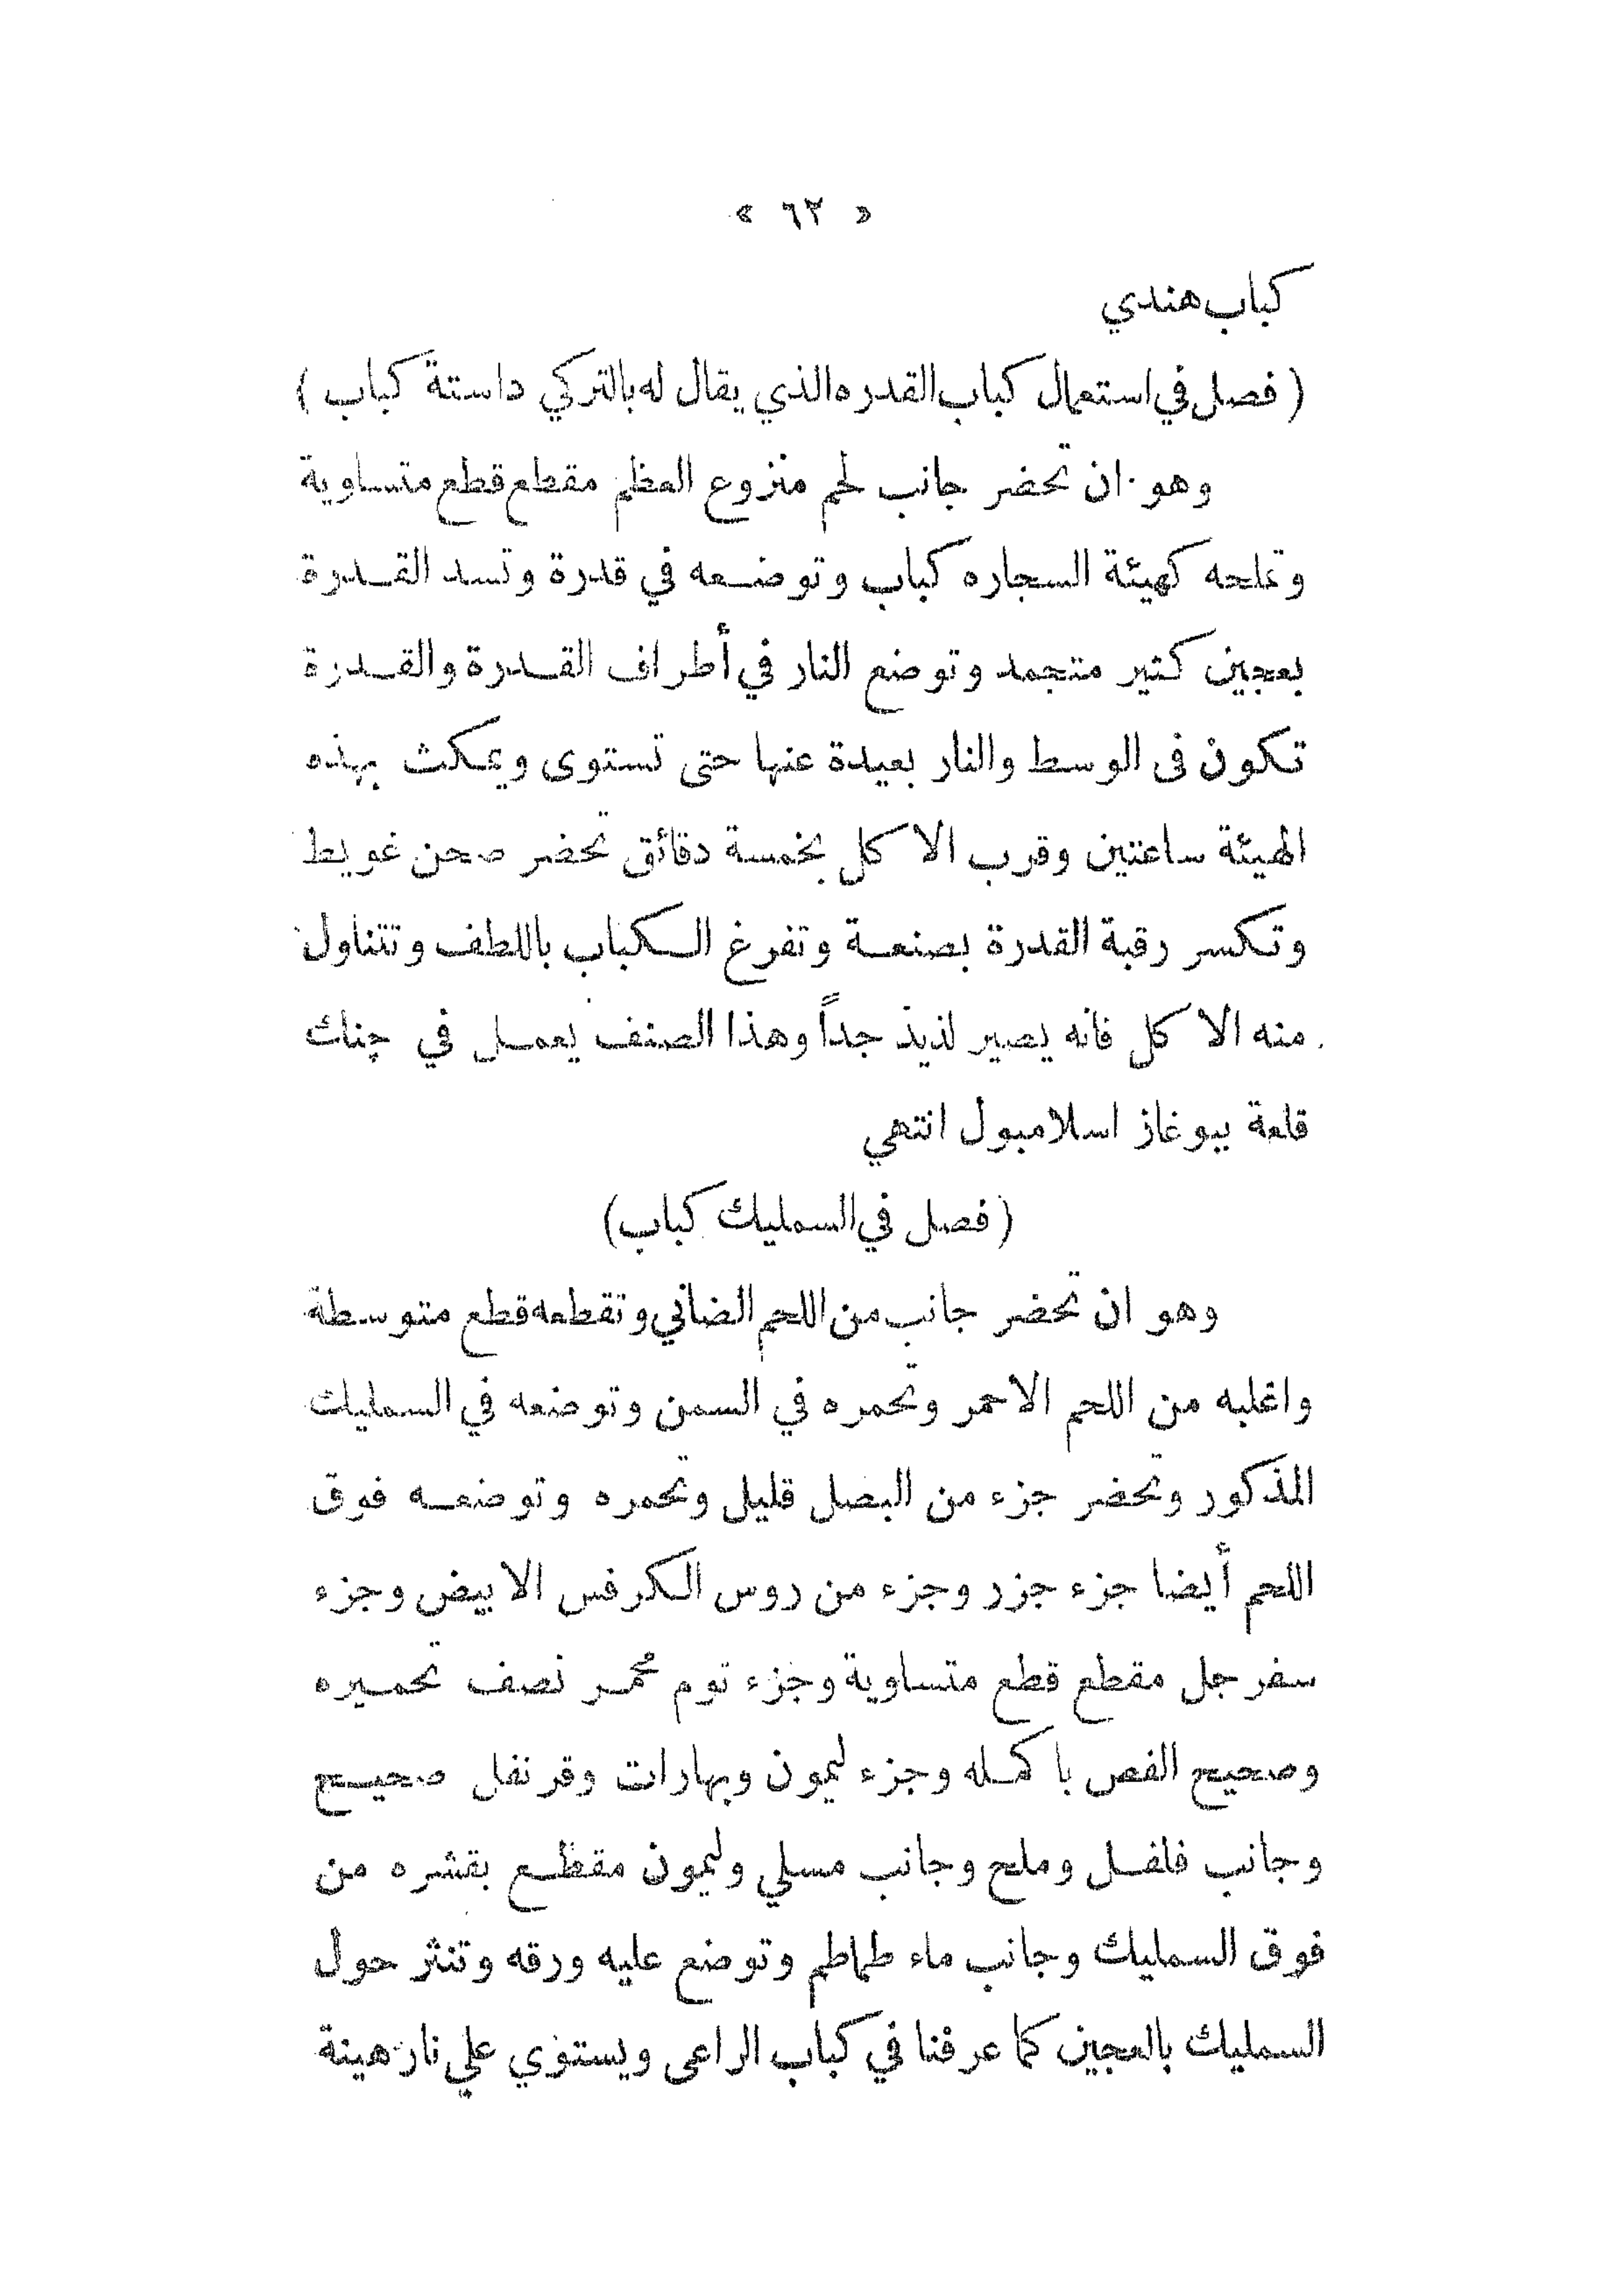 « ٦٢ »
كباب هندي
( فصل في استعمال كباب القدره الذي يقال له بالتركي داستة كباب )
وهو ان تحضر جانب لحم منزوع العظم مقطع قطع متساوية
وتملحه كهيئة السجاره كباب وتوضعه في قدرة وتسد القدرة
بعجين كثير متجمد وتوضع النار في أطراف القدرة والقدرة
تكون فى الوسط والنار بعيدة عنها حتى تستوى ويمكث بهذه
الهيئة ساعتين وقرب الاكل بخمسة دقائق تحضر صحن غويط
وتكسر رقبة القدرة بصنعة وتفرغ الكباب باللطف وتتناول
منه الاكل فانه يصير لذيذ جداً وهذا الصنف يعمل في چناك
قلعة ببوغاز اسلامبول انتهي
( فصل في السمليك كباب)
وهو ان تحضر جانب من اللحم الضاني وتقطعه قطع متوسطة
واغلبه من اللحم الاحمر وتحمره في السمن وتوضعه في السمليك
المذكور وتحضر جزء من البصل قليل وتحمره وتوضعه فوق
اللحم أيضا جزء جزر وجزء من روس الكرفس الابيض وجزء
سفرجل مقطع قطع متساوية وجزء توم محمر نصف تحميره
وصحيح الفص باكمله وجزء ليمون وبهارات وقرنفل صحيح
وجانب فلفل وملح وجانب مسلي وليمون مقطع بقشره من
فوق السمليك وجانب ماء طماطم وتوضع عليه ورقه وتنثر حول
السمليك بالعجين كما عرفنا في كباب الراعى ويستوي علي نار هينة